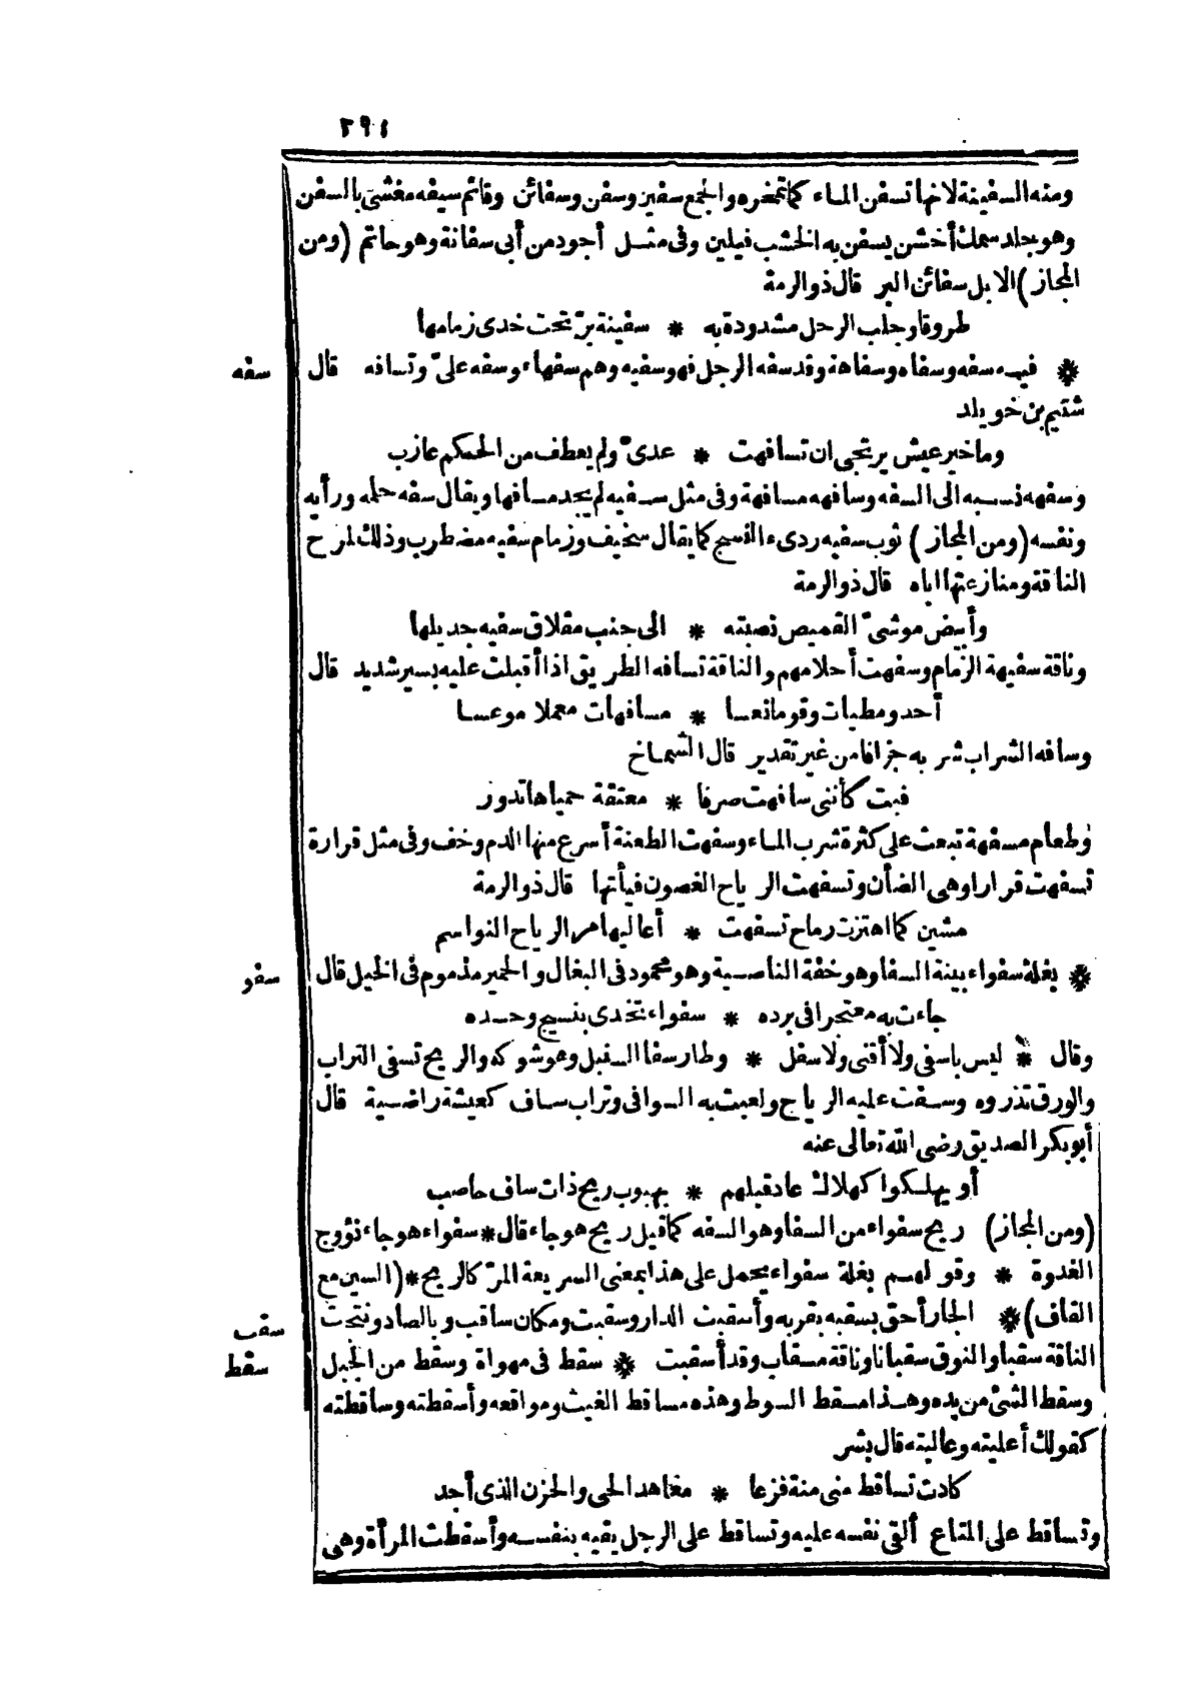 ٢٩٤
ومنه السفينة لانها تسفن الماء كما تمخره والجمع سفين وسفن وسفائن وقائم سيفه مغشى بالسفن
وهو جلد سمك أخشن يسفن به الخشب فيلين وفى مثل أجود من أبى سفانة وهو حاتم (ومن
المجاز) الابل سفائن البر قال ذو الرمة
طروقا وجلب الرحل مشدودة به * سفينة برّ تحت خدى زمامها
سفه
* فيه سفه وسفاه وسفاهة وقد سفه الرجل فهو سفيه وهم سفهاء وسفه علىّ وتسافه قال
شتيم بن خويلد
وما خير عيش يرتجى ان تسافهت * عدىّ ولم يعطف من الحكم عازب
وسفهه نسبه الى السفه وسافهه مسافهة وفى مثل سفيه لم يجد مسافها ويقال سفه حلمه ورأيه
ونفسه (ومن المجاز) ثوب سفيه ردىء النسج كما يقال سخيف وزمام سفيه مضطرب وذلك لمرح
الناقة ومنازعتها اياه قال ذو الرمة
وأبيض موشىّ القميص نصبته * الى جنب مقلاق سفيه جديلها
وناقة سفيهة الزمام وسفهت أحلامهم والناقة تسافه الطريق اذا أقبلت عليه بسير شديد قال
أحدو مطيات وقوما نعسا * مسافهات معملا موعسا
وسافه الشراب شربه جزافا من غير تقدير قال الشماخ
فبت كأننى سافهت صرفا * معتقة حمياها تدور
وطعام مسفهة تبعث على كثرة شرب الماء وسفهت الطعنة أسرع منها الدم وخف وفى مثل قرارة
تسفهت قرارا وهى الضأن وتسفهت الرياح الغصون فيأتها قال ذو الرمة
مشين كما اهتزت رماح تسفهت * أعاليها مر الرياح النواسم
سفو
* بغلة سفواء بينة السفا وهو خفة الناصية وهو محمود فى البغال والحمير مذموم فى الخيل قال
جاءت به معتجرا فى برده * سفواء تخدى بنسيج وحده
وقال * ليس باسفى ولا أقنى ولا سغل * وطار سفا السنبل وهو شوكه والريح تسفى التراب
والورق تذروه وسفت عليه الرياح ولعبت به السوافى وتراب ساف كعيشة راضية قال
أبو بكر الصديق رضى الله تعالى عنه
أو يهلكوا كهلاك عاد قبلهم * بهبوب ريح ذات ساف حاصب
(ومن المجاز) ريح سفواء من السفا وهو السفه كما قيل ريح هوجاء قال * سفواء هوجاء نؤوج
الغدوة * وقولهم بغلة سفواء يحمل على هذا بمعنى السريعة المرّ كالريح * (السين مع
سقب
القاف) * الجار أحق بسقبه بقربه وأسقبت الدار وسقبت ومكان ساقب وبالصاد ونتجت
سقط
الناقة سقبا والنوق سقبانا وناقة مسقاب وقد أسقبت * سقط فى مهواة وسقط من الجبل
وسقط الشئ من يده وهذا مسقط السوط وهذه مساقط الغيث ومواقعه وأسقطته وساقطته
كقولك أعليته وعاليته قال بشر
كادت تساقط منى منة فزعا * معاهد الحى والحزن الذى أجد
وتساقط على المتاع ألقى نفسه عليه وتساقط على الرجل يقيه بنفسه وأسقطت المرأة وهى